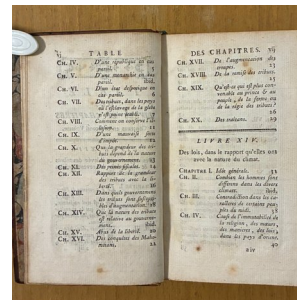 TABLE
CH. IV. D'une république en cas
pareil. 5
CH. V. D'une monarchie en cas
pareil. ibid.
CH. VI. D'un état despotique en
cas pareil. 6
CH. VII. Des tributs, dans les pays
où l'esclavage de la glebe
n'est pas en usage. 7
CH. VIII. Comment on conserve l'il-
lusion.
CH. IX. D'une mauvaise sorte
d'impôt.
CH. X. Que la grandeur des tri-
buts dépend de la nature
du gouvernement. 13
CH. XI. Des peines fiscales. 14
CH. XII. Rapport de la grandeur
des tributs avec la li-
berté.
CH. XIII. Dans quels gouvernements
les tributs sont suscepti-
bles d'augmentation.
CH. XIV. Que la nature des tributs
est relative au gouverne-
ment.
CH. XV. Abus de la liberté. 20
CH. XVI. Des conquêtes des Maho-
métans. 22
DES CHAPITRES.
CH. XVII. De l'augmentation des
troupes. 23
CH. XVIII. De la remise des tributs.
25
CH. XIX. Qu'est-ce qui est plus con-
venable au prince & au
peuple, de la ferme ou
de la régie des tributs?
CH. XX. Des traitans. 29
LIVRE XIV.
Des loix, dans le rapport qu'elles ont
avec la nature du climat.
CHAPITRE I. Idée générale. 32
CH. II. Combien les hommes sont
différens dans les divers
climats. ibid.
CH. III. Contradiction dans les ca-
racteres de certains peu-
ples du midi. 38
CH. IV. Cause de l'immutabilité de
la religion, des mœurs,
des manieres, des loix,
dans les pays d'orient.
40